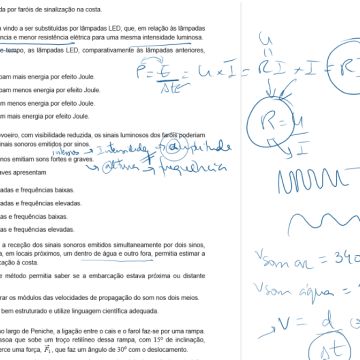 da por faróis de sinalização na costa.
vindo a ser substituídas por lâmpadas LED, que, em relação às lâmpadas
ência e menor resistência elétrica para uma mesma intensidade luminosa.
e tempo, as lâmpadas LED, comparativamente às lâmpadas anteriores,
am mais energia por efeito Joule.
am menos energia por efeito Joule.
m menos energia por efeito Joule.
m mais energia por efeito Joule.
voeiro, com visibilidade reduzida, os sinais luminosos dos faróis poderiam
inais sonoros emitidos por sinos.
intensos → Intensidade → amplitude
nos emitiam sons fortes e graves.
→ altura → frequência
aves apresentam
adas e frequências baixas.
adas e frequências elevadas.
as e frequências baixas.
as e frequências elevadas.
a receção dos sinais sonoros emitidos simultaneamente por dois sinos,
a, em locais próximos, um dentro de água e outro fora, permitia estimar a
cação à costa.
método permitia saber se a embarcação estava próxima ou distante
rar os módulos das velocidades de propagação do som nos dois meios.
bem estruturado e utilize linguagem científica adequada.
o largo de Peniche, a ligação entre o cais e o farol faz-se por uma rampa
ssoa que sobe um troço retilíneo dessa rampa, com 15° de inclinação,
erce uma força, F⃗₁, que faz um ângulo de 30° com o deslocamento.
U
P = E/Δt = U × I = R I × I = R
R = U/I
V som ar = 340
V som água =
→ V = d
Δt